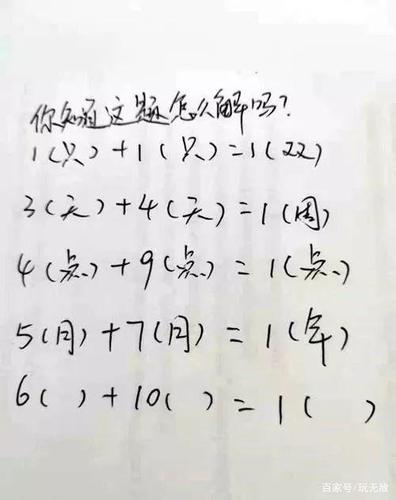 你知道这题怎么解吗?
1(只)+1(只)=1(双)
3(天)+4(天)=1(周)
4(点)+9(点)=1(点)
5(月)+7(月)=1(年)
6( )+10( )=1( )
百家号/玩无敌